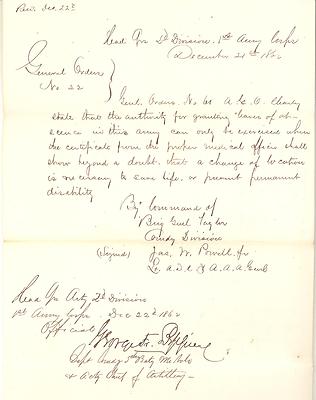 Rec. Dec. 22d
Head Qrs 2d Division, 1st Army Corps
December 21st 1862
General Orders
No 22
Genl. Orders. No 61 A. G. O. clearly
state that the authority for granting leaves of ab-
sence in this army can only be exercised when
the certificate from the proper medical officer shall
show beyond a doubt, that a change of location
is necessary to save life, or prevent permanent
disability
By Command of
Brig Genl Taylor
Comdg Division
(Signed) Jas. W. Powell Jr
A. A. A. Genl
Head Qrs Arty 2d Division
1st Army Corps Dec 22d 1862
Official
George F.
Capt Comdg 5th Baty Me Vols
& Actg Chief of Artillery -